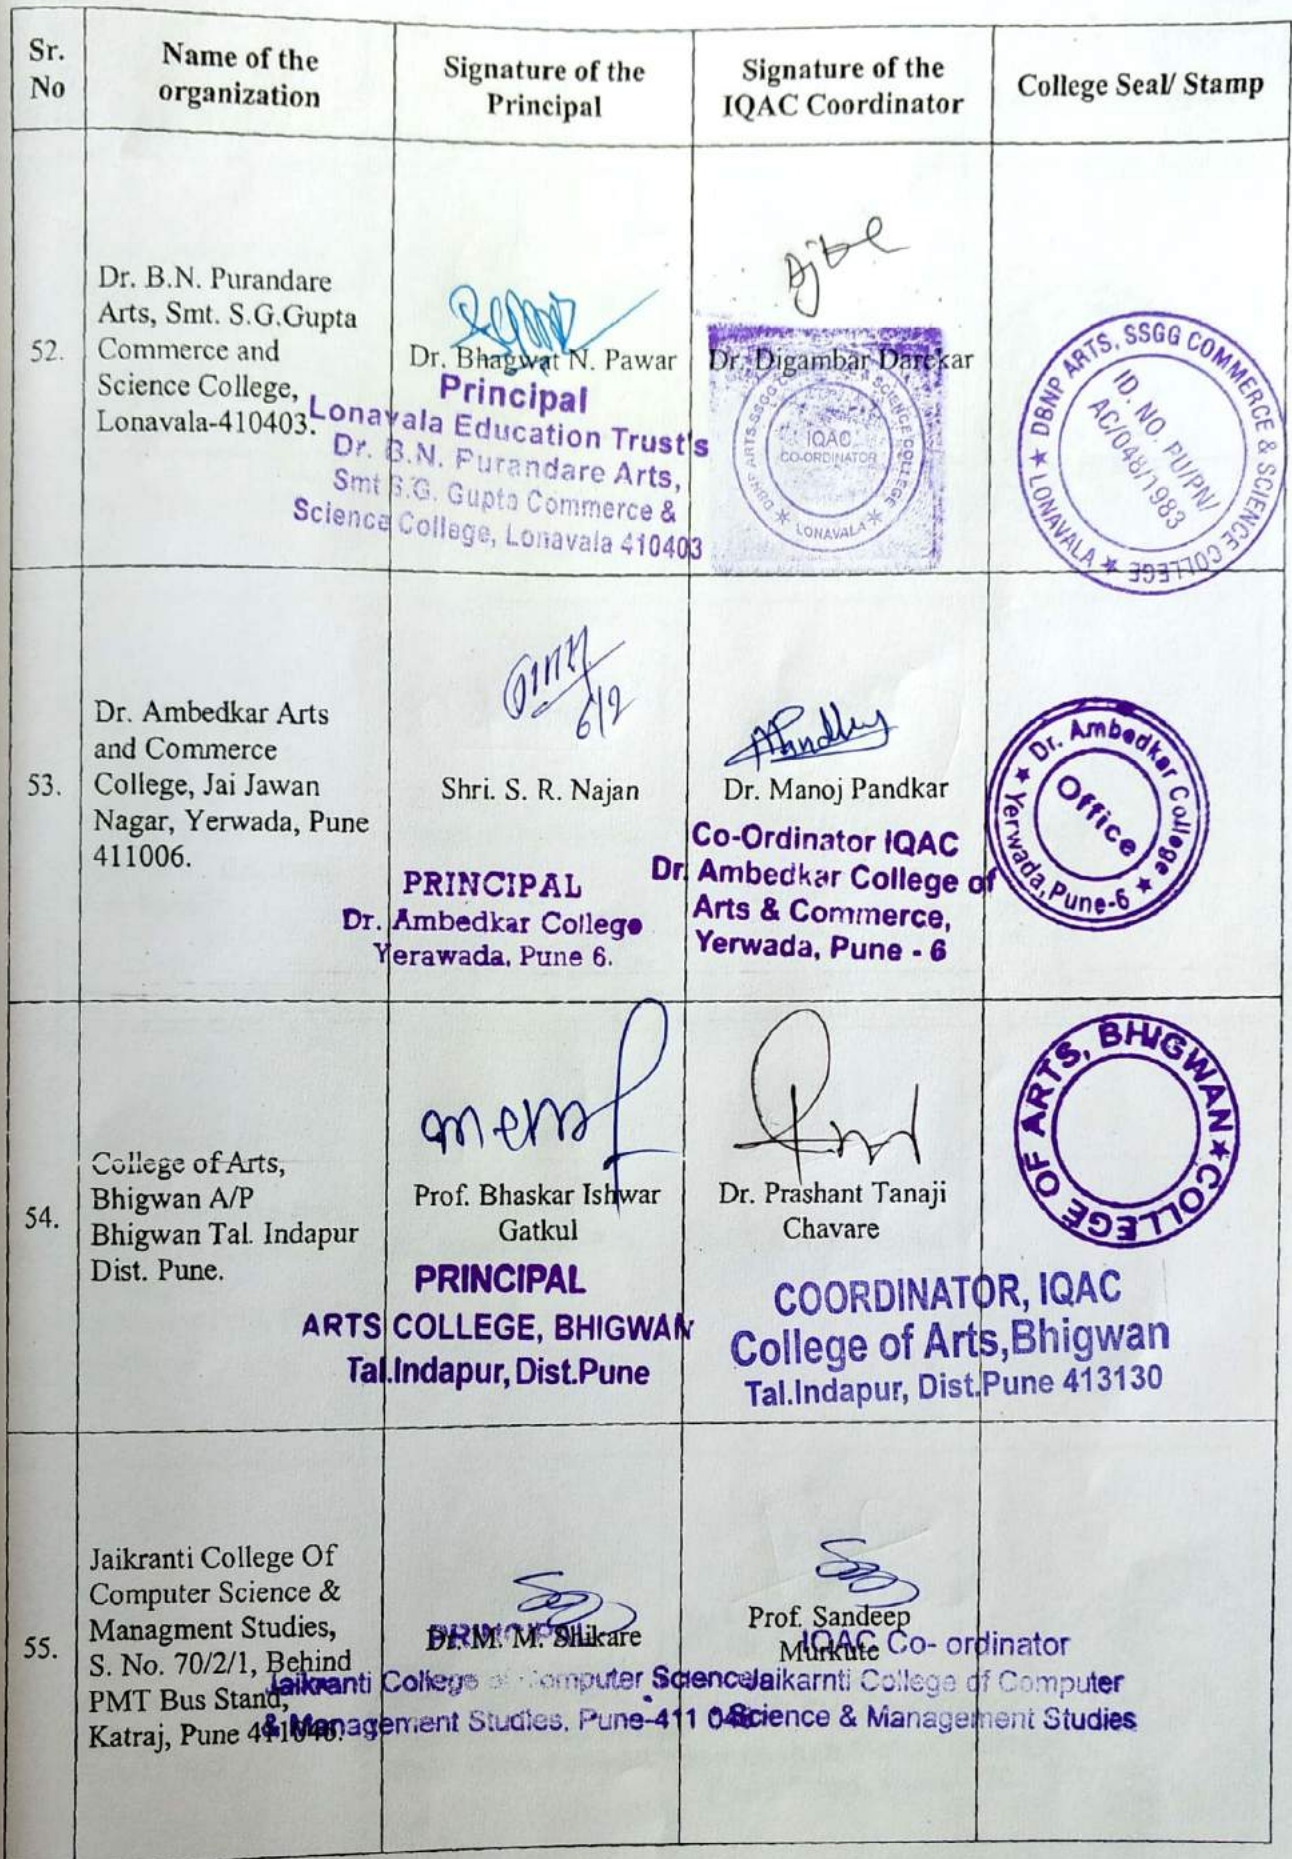 Sr.
No
Name of the
organization
Signature of the
Principal
Signature of the
IQAC Coordinator
College Seal/ Stamp
52.
Dr. B.N. Purandare
Arts, Smt. S.G.Gupta
Commerce and
Science College,
Lonavala-410403.
Dr. Bhagwat N. Pawar
Principal
Lonavala Education Trust's
Dr. B.N. Purandare Arts,
Smt S.G. Gupta Commerce &
Science College, Lonavala 410403
Dr. Digambar Darekar
DBNP ARTS, SSGG COMMERCE & SCIENCE COLLEGE
★ LONAVALA ★
IQAC
CO-ORDINATOR
★ DBNP ARTS, SSGG COMMERCE & SCIENCE COLLEGE ★ LONAVALA
ID. NO. PU/PN/
AC/048/1983
53.
Dr. Ambedkar Arts
and Commerce
College, Jai Jawan
Nagar, Yerwada, Pune
411006.
6/2
Shri. S. R. Najan
PRINCIPAL
Dr. Ambedkar College
Yerawada, Pune 6.
Dr. Manoj Pandkar
Co-Ordinator IQAC
Dr. Ambedkar College of
Arts & Commerce,
Yerwada, Pune - 6
★ Dr. Ambedkar College ★
Yerwada, Pune-6
Office
54.
College of Arts,
Bhigwan A/P
Bhigwan Tal. Indapur
Dist. Pune.
Prof. Bhaskar Ishwar
Gatkul
PRINCIPAL
ARTS COLLEGE, BHIGWAN
Tal.Indapur, Dist.Pune
Dr. Prashant Tanaji
Chavare
COORDINATOR, IQAC
College of Arts,Bhigwan
Tal.Indapur, Dist.Pune 413130
COLLEGE OF ARTS, BHIGWAN ★
55.
Jaikranti College Of
Computer Science &
Managment Studies,
S. No. 70/2/1, Behind
PMT Bus Stand,
Katraj, Pune 411046.
Dr. M. M. Shikare
PRINCIPAL
Jaikranti College of Computer Science
& Management Studies. Pune-411 046
Prof. Sandeep
Murkute
IQAC Co- ordinator
Jaikarnti College of Computer
Science & Management Studies